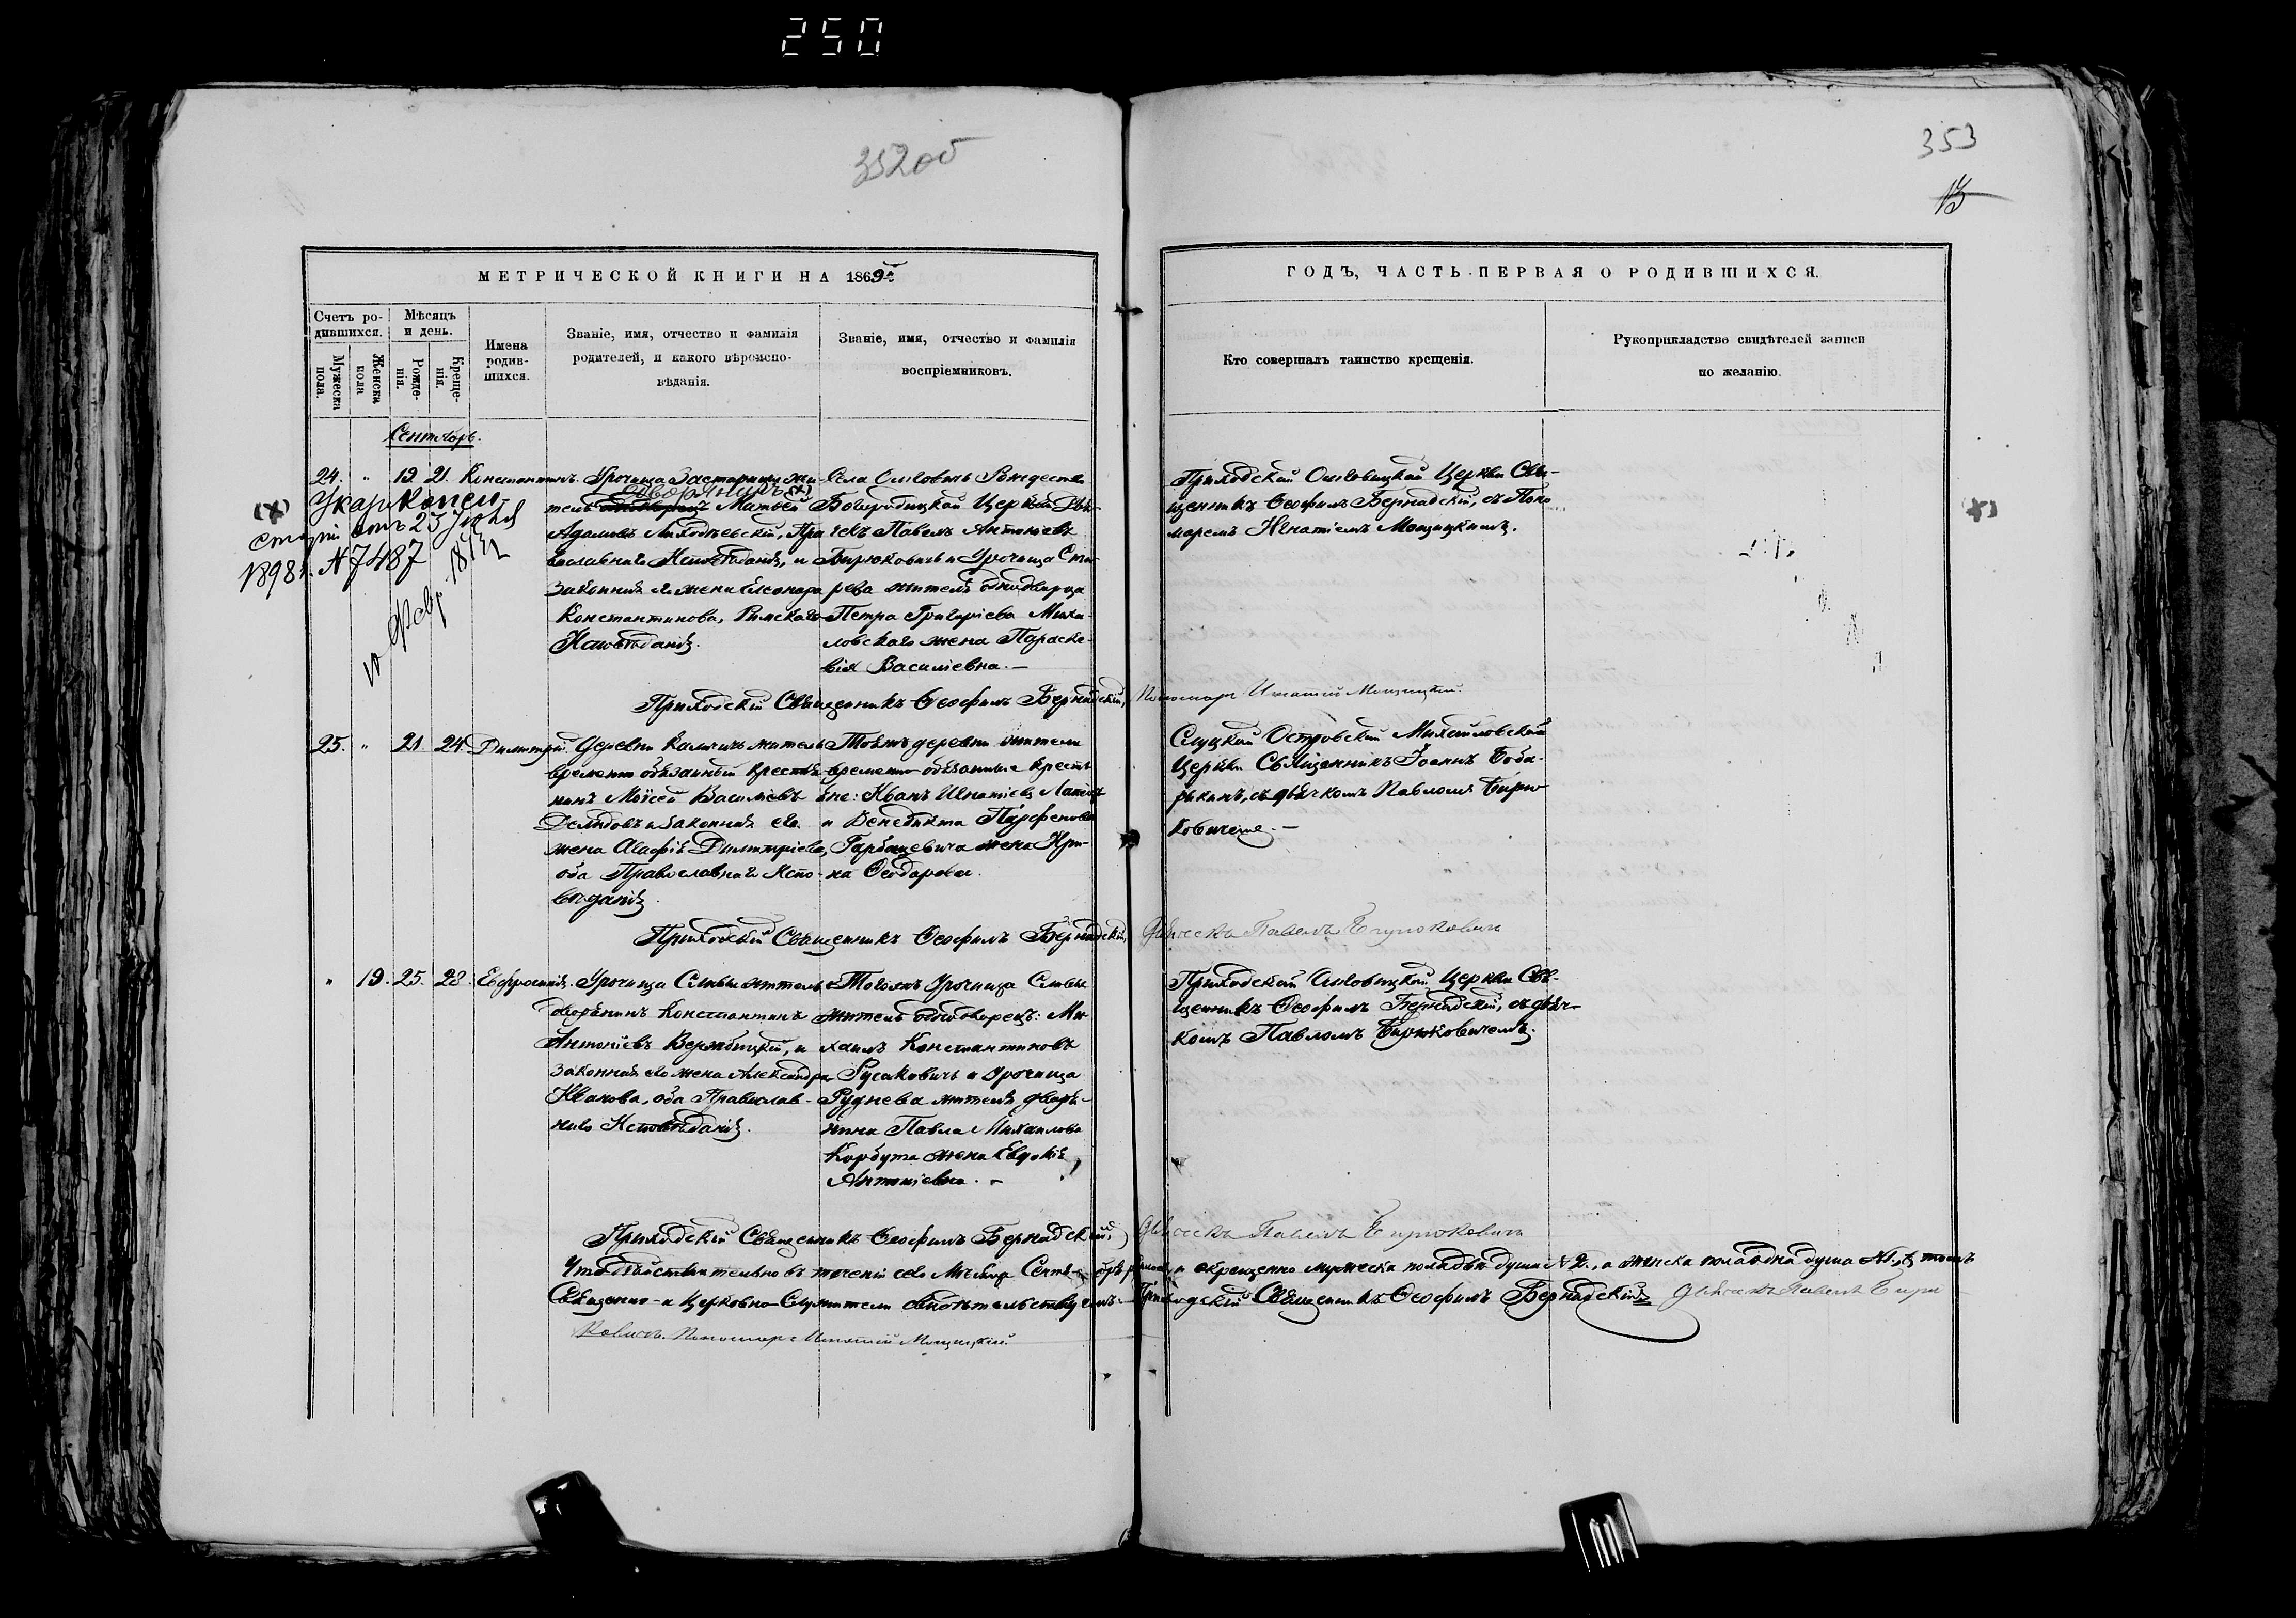 250
352об
353
13
МЕТРИЧЕСКОЙ КНИГИ НА 1869й
ГОДЪ, ЧАСТЬ ПЕРВАЯ О РОДИВШИХСЯ.
Счетъ ро-
дившихся.
Мужеска
пола.
Женска
пола
Мѣсяцъ
и день.
Рожде-
нія.
Креще-
нія.
Имена
родив-
шихся.
Званіе, имя, отчество и фамилія
родителей, и какого вѣроиспо-
вѣданія.
Званіе, имя, отчество и фамилія
воспріемниковъ.
Кто совершалъ таинство крещенія.
Рукоприкладство свидѣтелей записи
по желанію.
Сентябрь.
24. " 19 21. Константинъ.
(+) Указ Конси-
сторіи отъ 23 Іюня
1898 г. №7487
Урочища жи-
дворянинъ (+)
тель Матвей
Адамовъ Пра-
вославнаго Исповѣданія, и
законная его жена Елеонора
Константинова, Римскаго
Исповѣданія.
Села Рождество
Богородицкой Церкви Дья-
чекъ Павелъ Антоніевъ
Бирюковичъ и Урочища
жителя однодворца
Петра Григоріева Миха-
ловскаго жена Параске-
вія Василіевна. —
Приходской Церкви Свя-
щенникъ Ѳеофилъ Бернадскій, съ Поно-
маремъ Игнатіемъ Мощицкимъ.
Приходскій Священникъ Ѳеофилъ Бернадскій, Пономарь Игнатій Мощицкій.
25. " 21 24. Димитрій.
Деревни житель
временно обязанный крестья-
нинъ Моисей Василіевъ
Демидовъ и законная его
жена Агафія Димитріева,
оба Православнаго Испо-
вѣданія.
Тоежъ деревни жители
временно-обязанные кресть-
яне: Иванъ Игнатіевъ
и Венедикта Парфенова
Горбацевича жена Ири-
на Ѳеодорова.
Слуцкой Островской Михайловской
Церкви Священникъ Іоаннъ Боба-
рыкинъ, съ дьячкомъ Павломъ Бирю-
ковичемъ. —
Приходскій Священникъ Ѳеофилъ Бернадскій, Дьячекъ Павелъ Бирюковичъ
" 19. 25. 28. Евфросинія.
Урочища житель
дворянинъ Константинъ
Антоніевъ Вержбицкій, и
законная его жена Александра
Иванова, оба Православ-
наго Исповѣданія.
Тогожъ Урочища
житель однодворецъ: Ми-
хаилъ Константиновъ
Русаковичъ и Урочища
Руднева жителя дворя-
нина Павла Михаилова
Корбута жена Евдокія
Антоніевна. —
Приходской Церкви Свя-
щенникъ Ѳеофилъ Бернадскій, съ дьяч-
комъ Павломъ Бирюковичемъ.
Приходскій Священникъ Ѳеофилъ Бернадскій, Дьячекъ Павелъ Бирюковичъ
Что действительно въ теченіи сего Мѣсяца Сентября и окрещено мужеска пола двѣ души №2., а женска пола одна душа №1, въ томъ
Священно- и Церковно-Служители свидѣтельствуемъ. Приходскій Священникъ Ѳеофилъ Бернадскій Дьячекъ Павелъ Бирю-
ковичъ. Пономарь Игнатій Мощицкій.